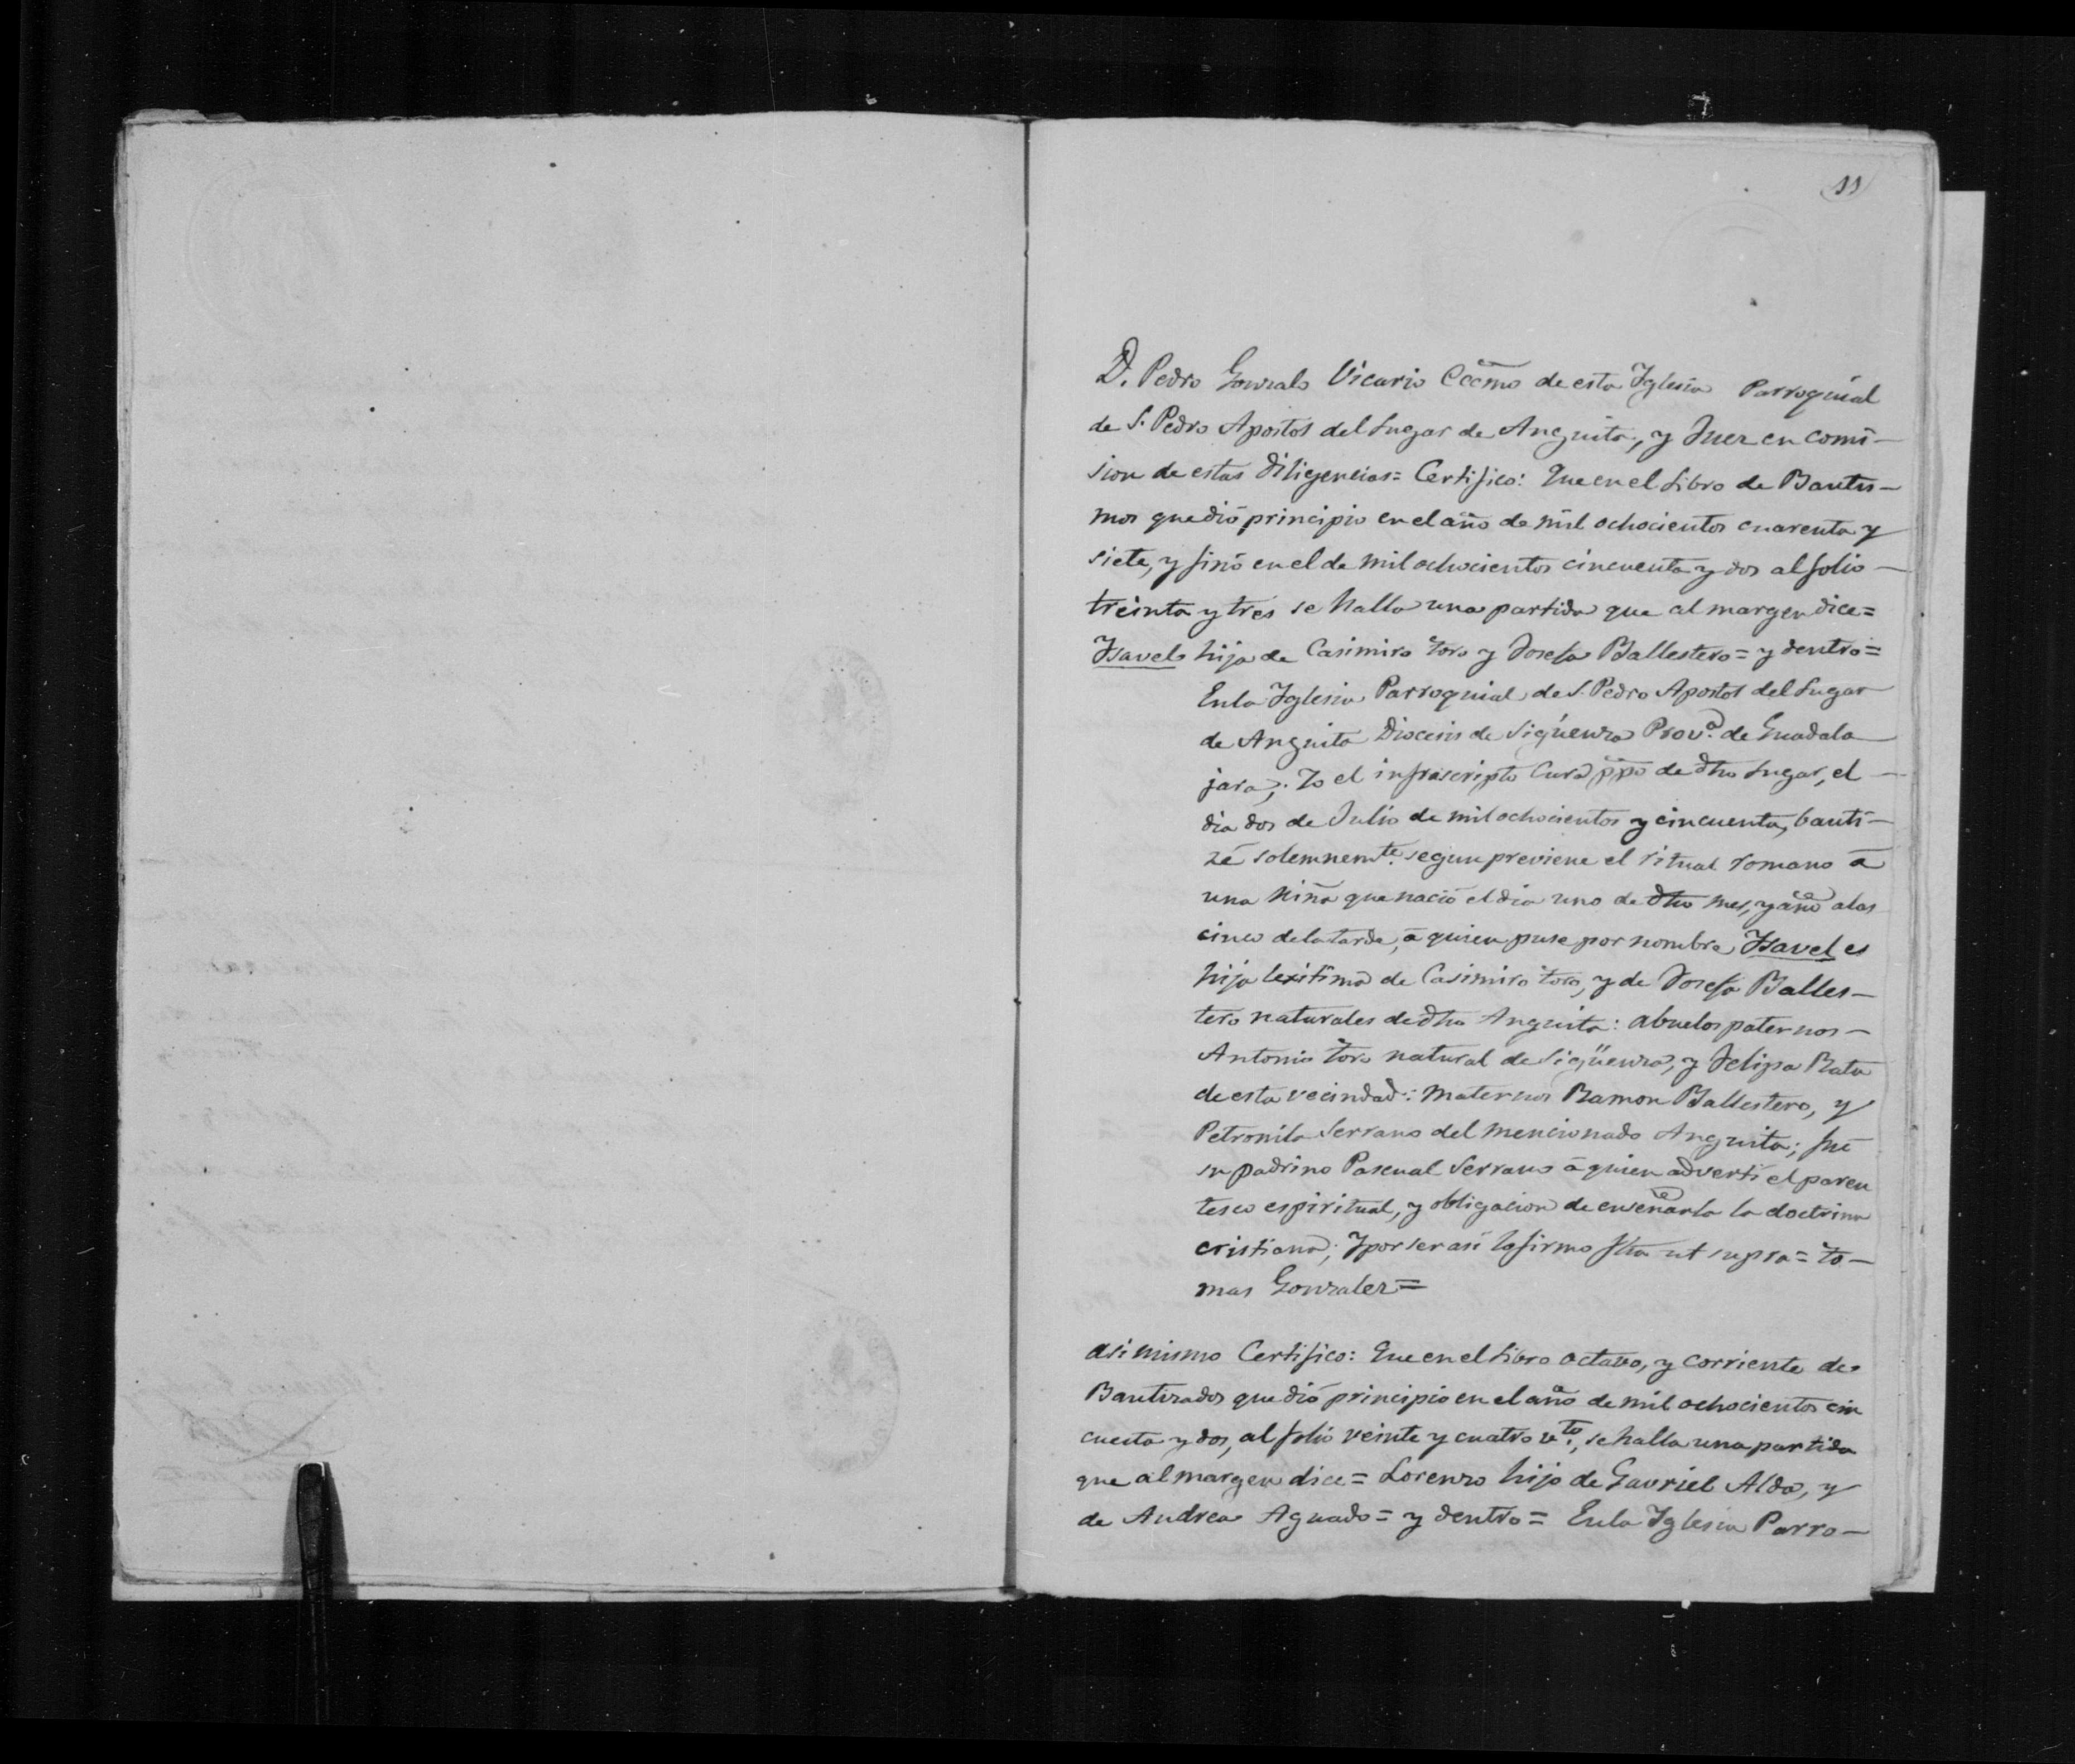 11
D. Pedro Gonzalo Vicario Ccmo de esta Yglesia Parroquial
de S. Pedro Apostol del Lugar de Anguita, y Juez en comi-
sion de estas diligencias= Certifico: Que en el Libro de Bautis-
mos que dió principio en el año de mil ochocientos cuarenta y
siete, y finó en el de mil ochocientos cincuenta y dos al folio-
treinta y tres se halla una partida que al margen dice=
Ysavel hija de Casimiro toro y Josefa Ballestero= y dentro=
En la Yglesia Parroquial de S. Pedro Apostol del Lugar
de Anguita Diocesis de Sigüenza Prov.a de Guadala
jara; Yo el infrascripto Cura ppo de dho Lugar, el-
dia dos de Julio de mil ochocientos y cincuenta, bauti-
zé solemnemte. segun previene el ritual romano á
una niña que nació el dia uno de dho mes, y año a las
cinco de la tarde, á quien puse por nombre Ysavel es
hija lexitima de Casimiro toro, y de Josefa Balles-
tero naturales de dho Anguita: abuelos paternos-
Antonio toro natural de Sigüenza, y Felipa Rata
de esta vecindad: maternos Ramon Ballestero, y
Petronila Serrano del mencionado Anguita; fué
su padrino Pascual Serrano á quien adverti el paren
tesco espiritual, y obligacion de enseñarla la doctrina
cristiana; Y por ser asi lo firmo fha ut supra= to-
mas Gonzalez=
asi mismo Certifico: Que en el Libro octavo, y corriente de
Bautizados que dió principio en el año de mil ochocientos cin
cuenta y dos, al folio veinte y cuatro vto., se halla una partida
que al margen dice= Lorenzo hijo de Gavriel Aldo, y
de Andrea Aguado= y dentro= En la Yglesia Parro-